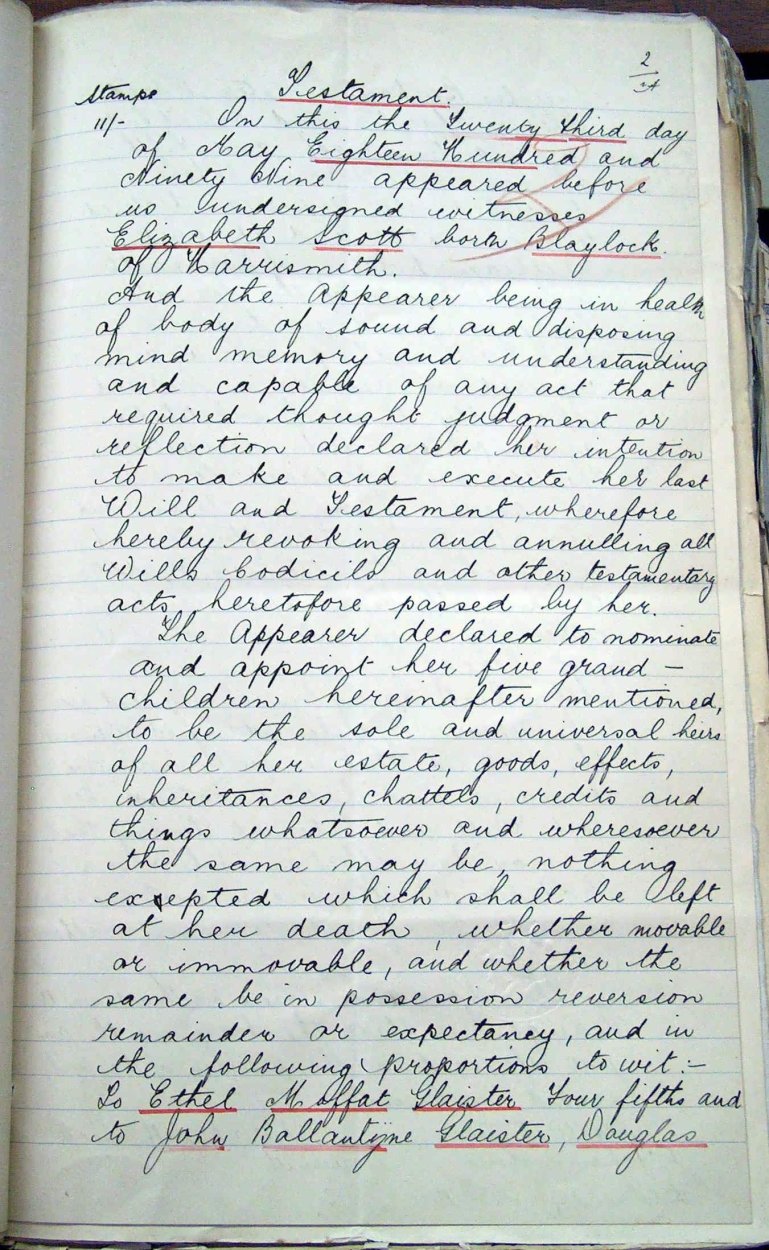 2
Stamps
11/-
Testament.
On this the Twenty third day
of May Eighteen Hundred and
Ninety Nine appeared before
us undersigned witnesses
Elizabeth Scott born Blaylock.
of Harrismith.
And the Appearer being in health
of body of sound and disposing
mind memory and understanding
and capable of any act that
required thought judgment or
reflection declared her intention
to make and execute her last
Will and Testament, wherefore
hereby revoking and annulling all
Wills Codicils and other testamentary
acts heretofore passed by her.
The Appearer declared to nominate
and appoint her five grand-
children hereinafter mentioned,
to be the sole and universal heirs
of all her estate, goods, effects,
inheritances, chattels, credits and
things whatsoever and wheresoever
the same may be, nothing
excepted which shall be left
at her death, whether movable
or immovable, and whether the
same be in possession reversion
remainder or expectancy, and in
the following proportions to wit:-
To Ethel Moffat Glaister Four fifths and
to John Ballantyne Glaister, Douglas